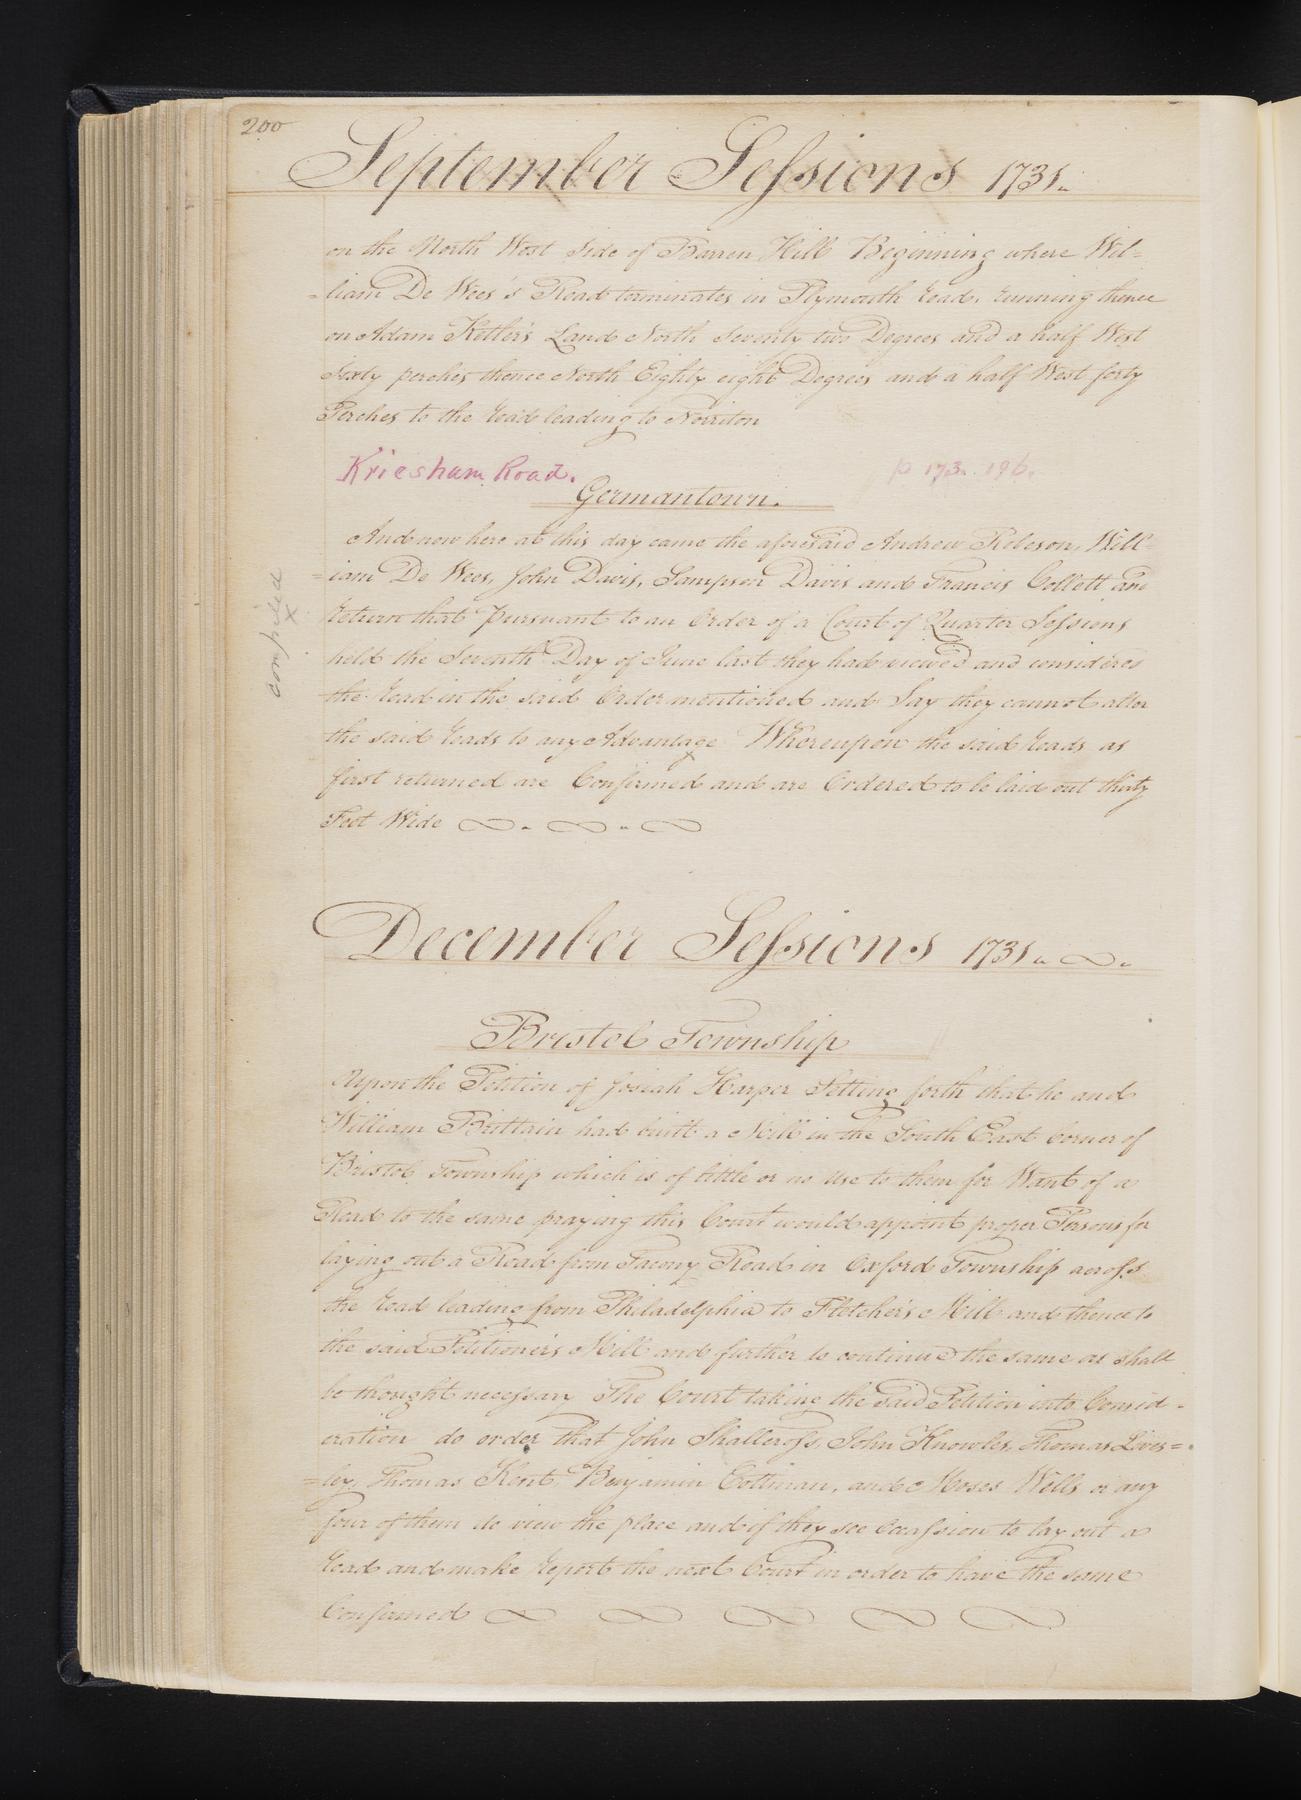 200
September Sessions 1731.
on the North West side of Barren Hill Beginning where Wil=
=liam De Wees's Road terminates in Plymouth road, running thence
on Adam Kitler's Land North Seventy two Degrees and a half West
Sixty perches thence North Eighty eight Degrees and a half West forty
Perches to the road leading to Norriton
Kriesham Road.
p 173. 196.
Germantown.
And now here at this day came the aforesaid Andrew Robeson, Will=
=iam De Wees, John Davis, Sampson Davis and Francis Collett and
return that pursuant to an Order of a Court of Quarter Sessions
held the Seventh Day of June last they had viewed and considered
the road in the said Order mentioned and Say they cannot alter
the said roads to any Advantage Whereupon the said roads as
first returned are Confirmed and are Ordered to be laid out thirty
Feet Wide
compiled
x
December Sessions 1731.
Bristol Township
Upon the Petition of Josiah Harper Setting forth that he and
William Brittain had built a Mill in the South East Corner of
Bristol Township which is of little or no use to them for Want of a
Road to the same praying this Court would appoint proper Persons for
laying out a Road from Tacony Road in Oxford Township across
the road leading from Philadelphia to Fletcher's Mill and thence to
the said Petitioner's Mill and further to continue the same as shall
be thought necessary The Court taking the said Petition into Consid=
eration do order that John Shallcross, John Knowles, Thomas Lives=
=ley, Thomas Kent, Benjamin Cottman, and Moses Wells or any
four of them do view the place and if they see Occassion to lay out a
road and make report the next Court in order to have the same
Confirmed